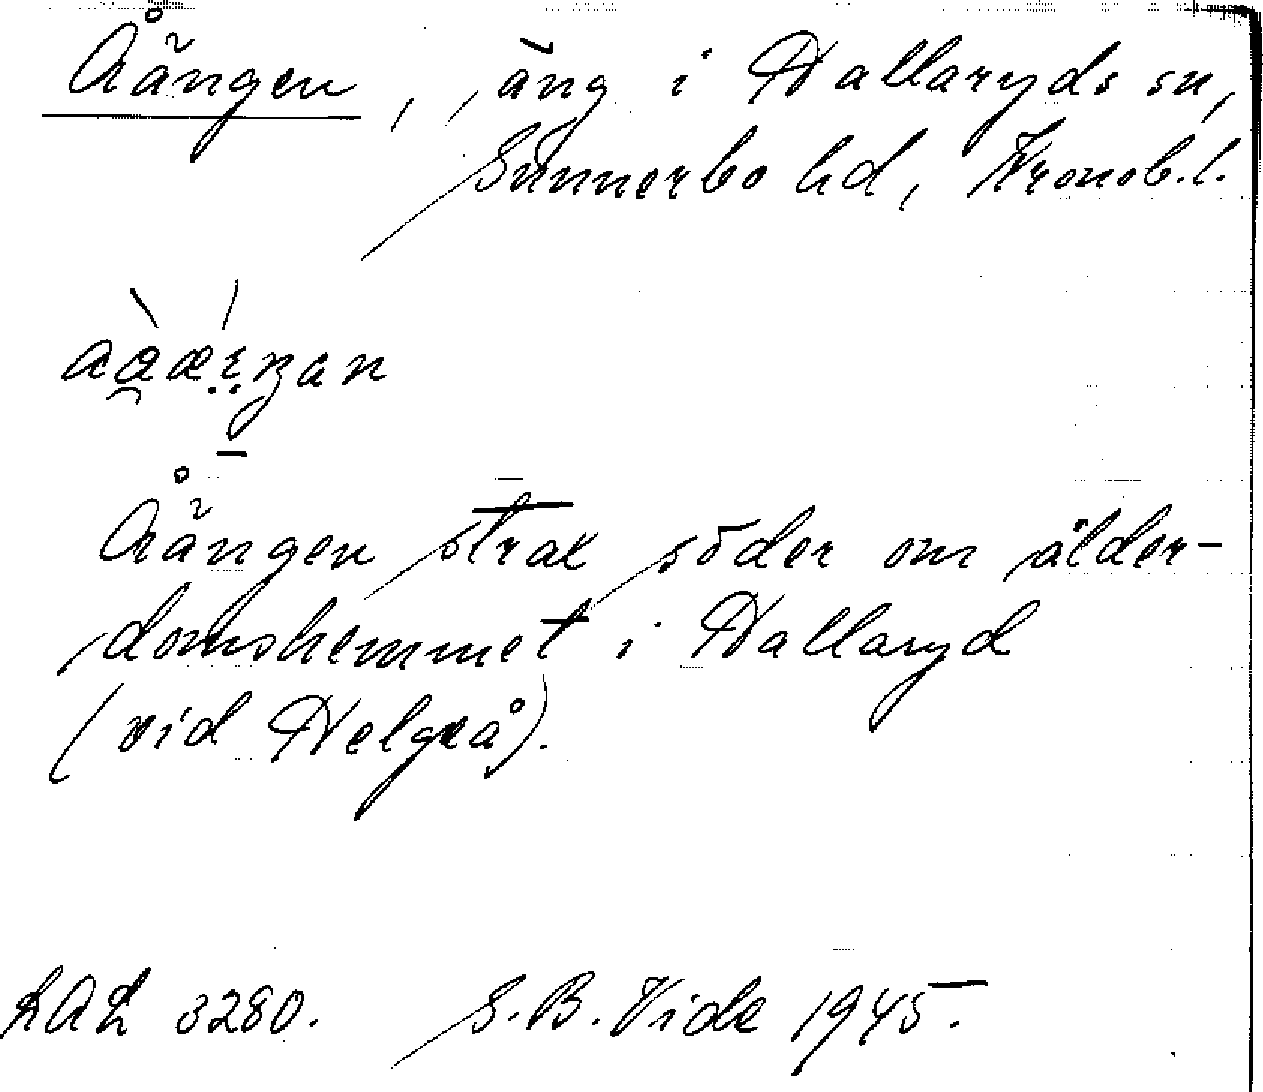 Åängen, äng i Hallaryds sn,
Sunnerbo hd, Kronob.l.
Åängen strax söder om ålder-
domshemmet i Hallaryd
(vid Helgeå).
LAL 3280. S.B. Vide 1945.